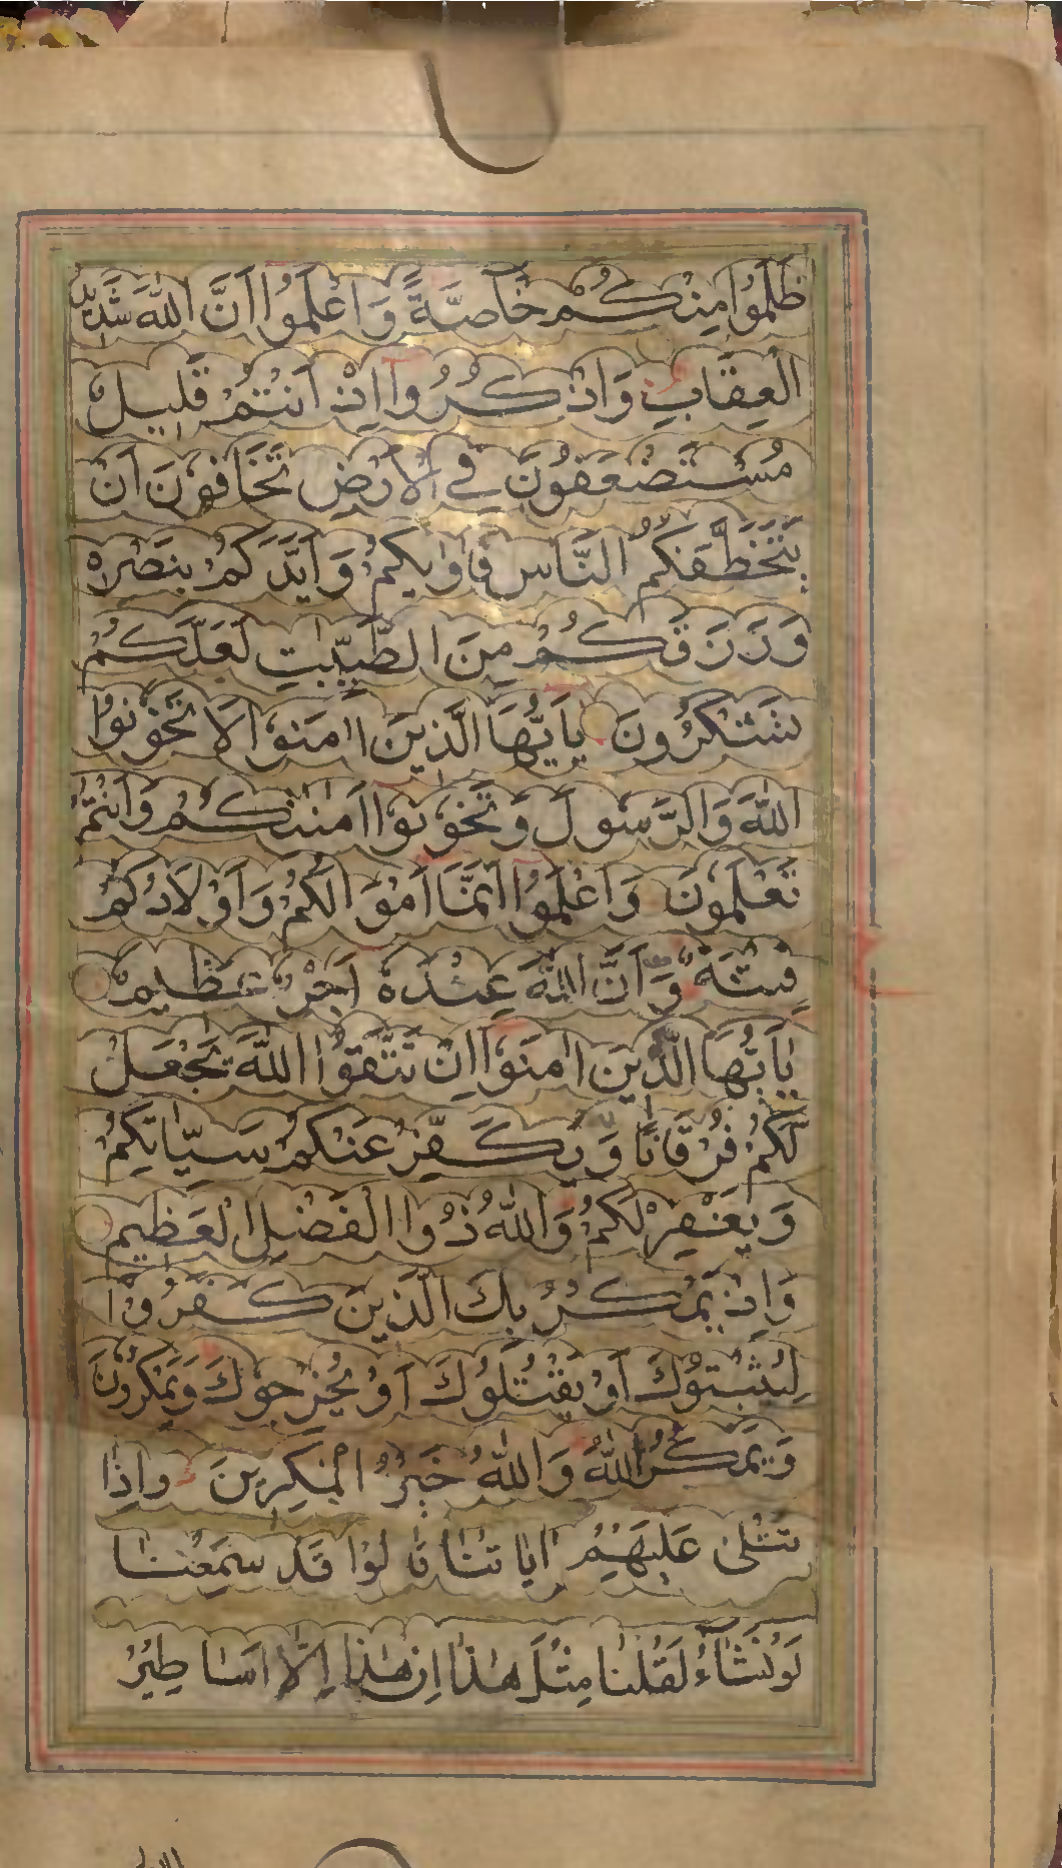 ظَلَمُوا مِنْكُمْ خَاصَّةً وَاعْلَمُوا اَنَّ اللّٰهَ شَدِيدُ
الْعِقَابِ وَاذْكُرُوا اِذْ اَنْتُمْ قَلِيلٌ
مُسْتَضْعَفُونَ فِي الْاَرْضِ تَخَافُونَ اَنْ
يَتَخَطَّفَكُمُ النَّاسُ فَاٰوٰيكُمْ وَاَيَّدَكُمْ بِنَصْرِهِ
وَرَزَقَكُمْ مِنَ الطَّيِّبٰتِ لَعَلَّكُمْ
تَشْكُرُونَ يٰاَيُّهَا الَّذِينَ اٰمَنُوا لَا تَخُونُوا
اللّٰهَ وَالرَّسُولَ وَتَخُونُوا اَمٰنٰتِكُمْ وَاَنْتُمْ
تَعْلَمُونَ وَاعْلَمُوا اَنَّمَا اَمْوَالُكُمْ وَاَوْلَادُكُمْ
فِتْنَةٌ وَاَنَّ اللّٰهَ عِنْدَهُ اَجْرٌ عَظِيمٌ
يٰاَيُّهَا الَّذِينَ اٰمَنُوا اِنْ تَتَّقُوا اللّٰهَ يَجْعَلْ
لَكُمْ فُرْقَانًا وَيُكَفِّرْ عَنْكُمْ سَيِّاٰتِكُمْ
وَيَغْفِرْ لَكُمْ وَاللّٰهُ ذُوا الْفَضْلِ الْعَظِيمِ
وَاِذْ يَمْكُرُ بِكَ الَّذِينَ كَفَرُوْا
لِيُثْبِتُوكَ اَوْ يَقْتُلُوكَ اَوْ يُخْرِجُوكَ وَيَمْكُرُونَ
وَيَمْكُرُ اللّٰهُ وَاللّٰهُ خَيْرُ الْمٰكِرِينَ وَاِذَا
تُتْلٰى عَلَيْهِمْ اٰيَاتُنَا قَالُوْا قَدْ سَمِعْنَا
لَوْ نَشَاءُ لَقُلْنَا مِثْلَ هٰذَا اِنْ هٰذَا اِلَّا اَسَاطِيرُ